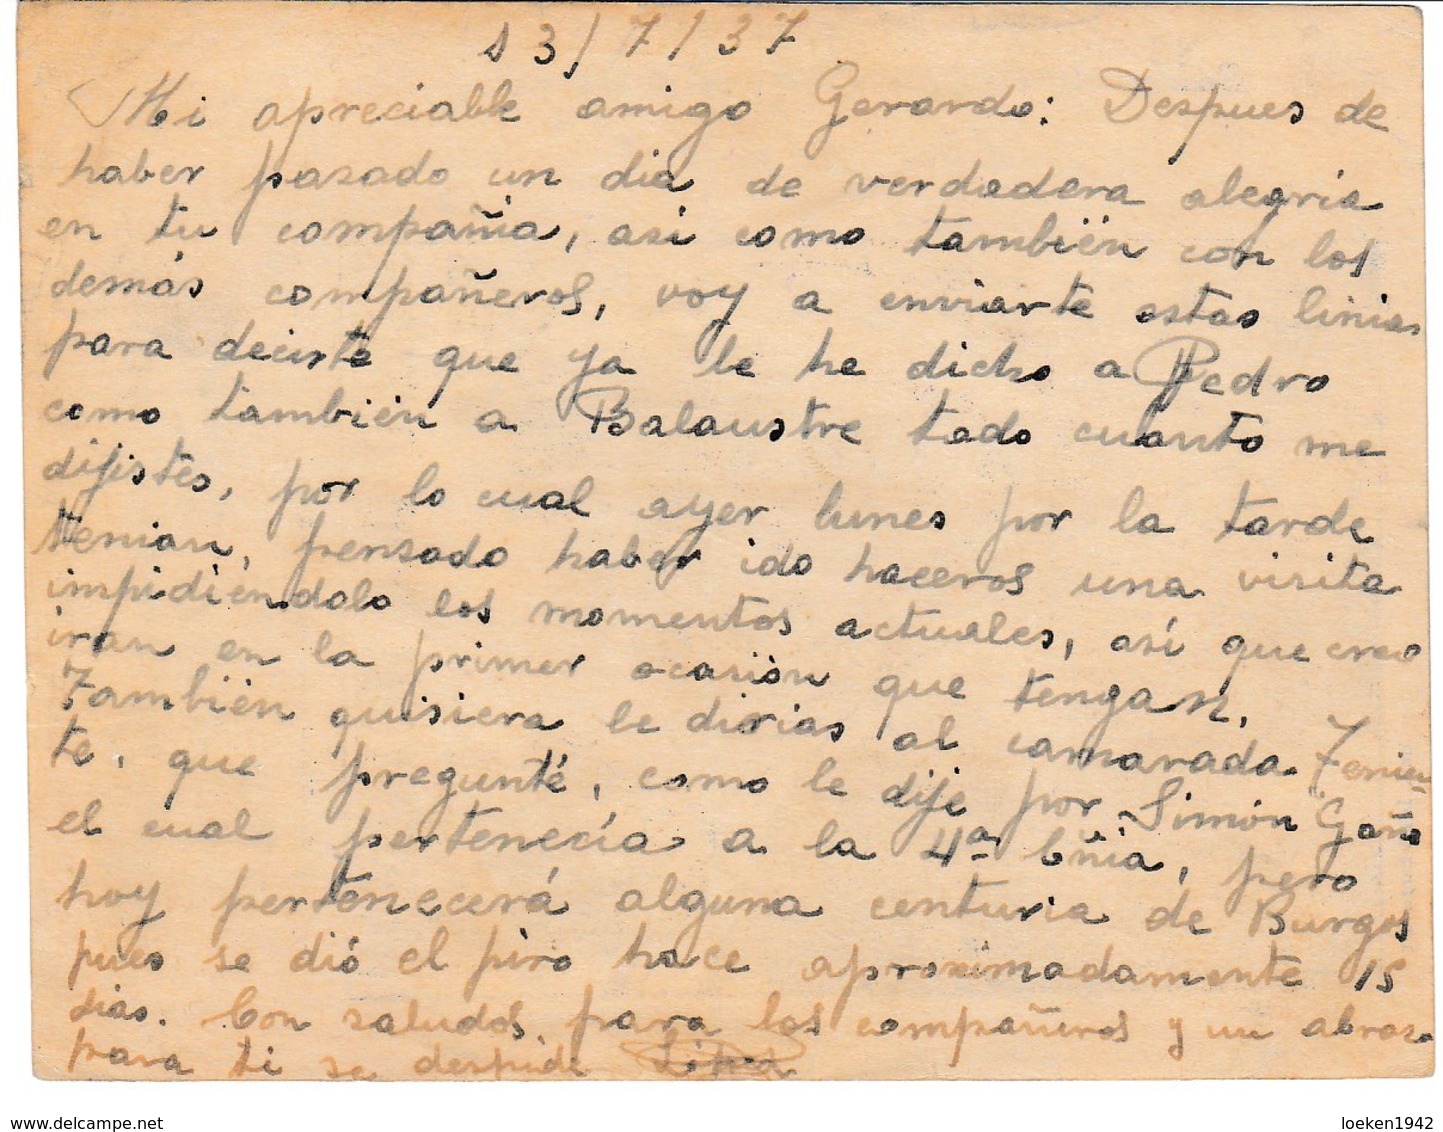 13/7/37
Mi apreciable amigo Gerardo: Despues de
haber pasado un dia de verdadera alegria
en tu compañia, asi como también con los
demás compañeros, voy a enviarte estas linias
para decirte que ya le he dicho a Pedro
como también a Balaustre todo cuanto me
dijistes, por lo cual ayer lunes por la tarde
tenian, pensado haber ido haceros una visita
impidiéndolo los momentos actuales, así que creo
iran en la primer ocasión que tengan.
También quisiera le dirias al camarada Tenien-
te, que pregunté, como le dije por Simón Gaño
el cual pertenecía a la 4ª Cñia, pero
hoy pertenecerá alguna centuria de Burgos
pues se dió el piro hace aproximadamente 15
dias. Con saludos para los compañeros y un abrazo
para ti se despide López
www.delcampe.net
loeken1942